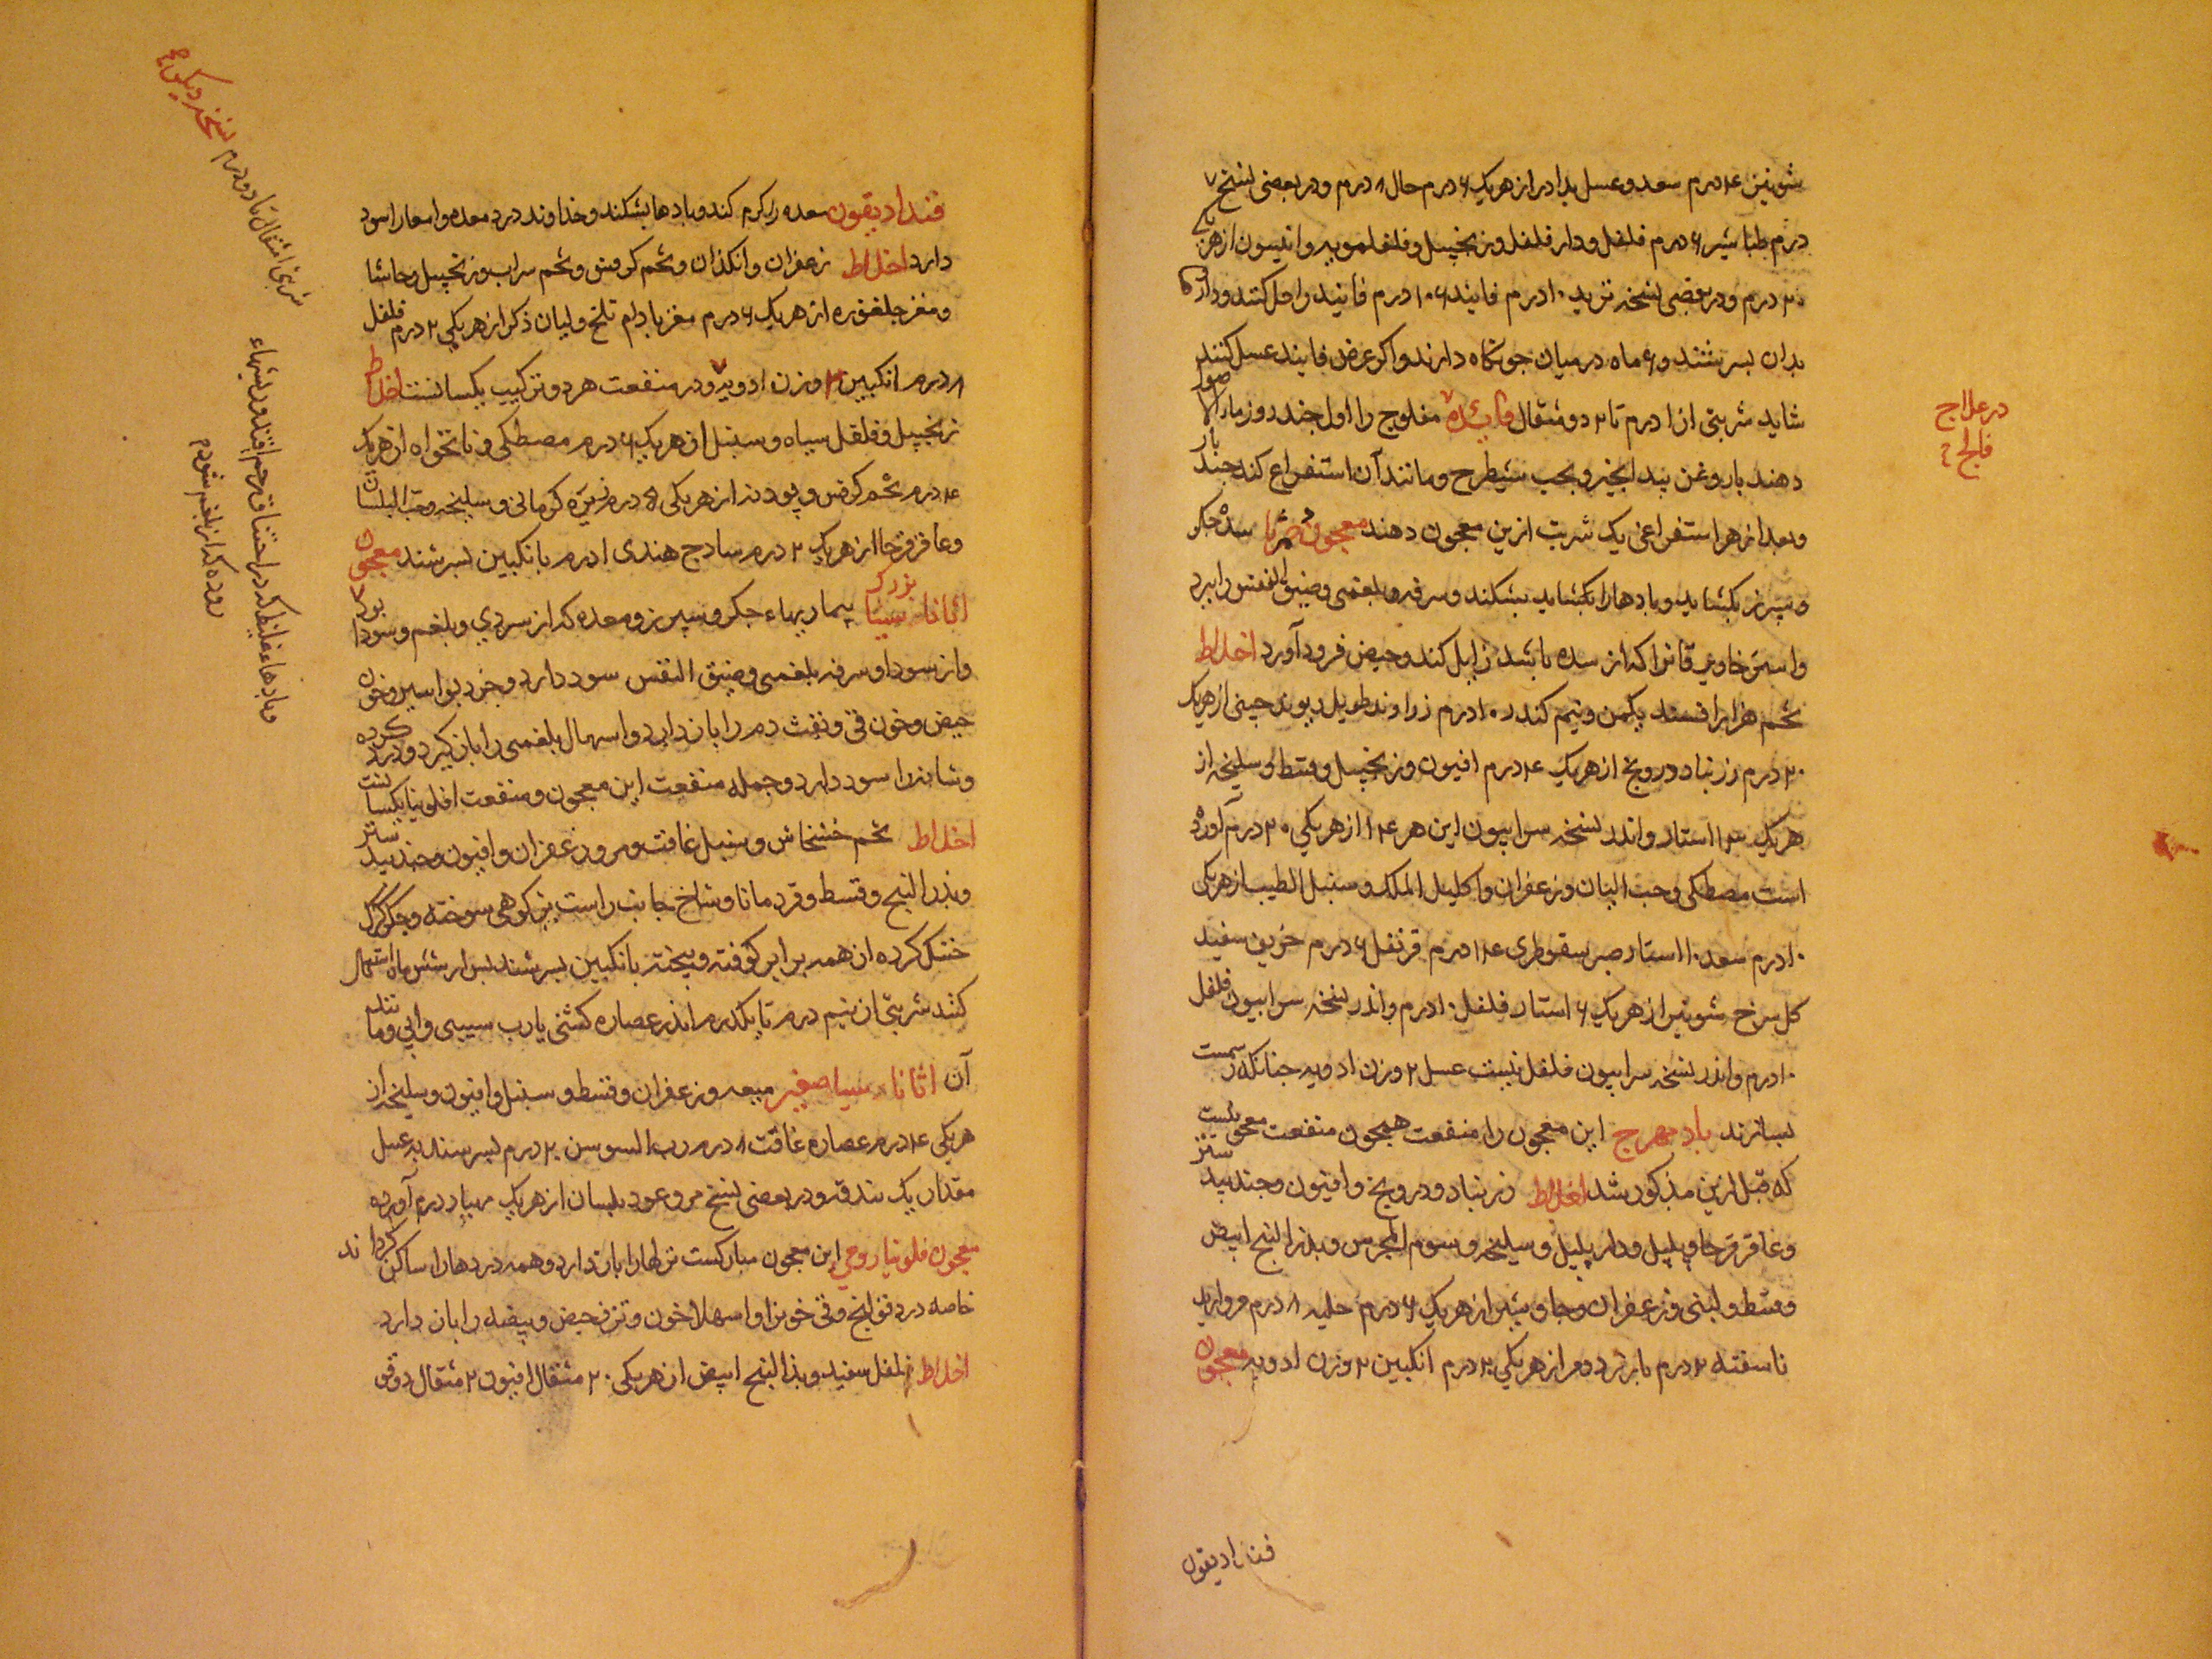 شونیز ۴ درم سعد و عسل بلادر از هریک ۶ درم حال ۸ درم و در بعضی نسخ ۷
درم طباشیر ۶ درم فلفل و دار فلفل و زنجپیل و فلفلمویه و انیسون از هر یک
۲۰ درم و در بعضی نسخه تربد ۱۰ درم فانید ۱۰۶ درم فانید را حل کنند و داروها
بدان بسرشند و ۶ ماه در میان جو نکاه دارند و اکر عوض فانید عسل کنند
شاید شربتی از ۱ درم تا ۲ دو مثقال فائده مفلوج را اول چند روز ماء الاصول
دهند با روغن بید انجیر و بحب شیطرج و مانند آن استفراغ کند چند بار
و بعد از هر استفراغی یک شربت ازین معجون دهند معجون سده جکر
و سپرز بکشاید و بادها را بکشاید بشکند و سرفه بلغمی و ضیق النفس را ببرد
و که از سده باشد زایل کند و حیض فرود آورد اخلاط
تخم هزار اسفند یکمن و نیم کندر ۱۰ درم زراوند طویل ریوند چینی از هریک
۲۰ درم زرنباد درونج از هریک ۴ درم افیون و زنجپیل و قسط و سلیخه از
هریک استار و اندر نسخه سرابیون این هر از هریکی ۲۰ درم آورده
است مصطکی و حب البان و زعفران و اکلیل الملک و سنبل الطیب از هریکی
۱۰ درم سعد ۱۰ استار صبر سقوطری ۱۴ درم قرنفل ۶ درم خربق سفید
کل سرخ شونیز از هریک ۶ استار فلفل ۱۰ درم و اندر نسخه سرابیون فلفل
۱۰ درم و اندر نسخه سرابیون فلفل نیست عسل ۲ وزن ادویه چنانکه رسمست
بسازند باد مهرج این معجون را منفعت همچون منفعت معجونیست
که قبل ازین مذکور شد اخلاط زرنباد و درونج و افیون و جندبیدستر
و عاقرقرحا و پلپل و دار پلپل و سلیخه و بذر البنج ابیض
و قسط و لبنی و زعفران و جاوشیر از هریک ۶ درم حلبه ۸ درم مروارید
ناسفته ۲ درم از هریکی ۲ درم انکبین ۲ وزن ادویه معجون
در علاج
فالج
فندادیقون
فندادیقون معده را کرم کند و بادها بشکند و خداوند درد معده و امعا را سود
دارد اخلاط زعفران و انکدان و تخم کرفس و تخم سداب و زنجپیل و حاشا
و مغز جلغوزه از هریک ۶ درم مغز بادام تلخ و لبان ذکر از هریکی ۲ درم فلفل
۸ درم انکبین ۳ وزن ادویه و در منفعت هر دو ترکیب یکسانست اخلاط
زنجپیل و فلفل سیاه و سنبل از هریک ۶ درم مصطکی و نانخواه از هریک
۴ درم تخم کرفس و پودنه از هریکی ۵ درم زیره کرمانی و سلیخه و حب البلسان
و عاقرقرحا از هریک ۲ درم سادج هندی ۱ درم بانکبین بسرشند معجون
اثاناسیا بزرک بیماریهاء جکر و سپرز و معده که از سردی و بلغم و سودا بود
و از سودا و سرفه بلغمی و ضیق النفس سود دارد و خون بواسیر و خون
حیض و خون قی و نفث دم را باز دارد و اسهال بلغمی را باز کیرد و درد کرده
و مثانه را سود دارد و جمله منفعت این معجون و منفعت افلونیا یکسانست
اخلاط تخم خشخاش و سنبل غافت و مر و زعفران و افیون و جندبیدستر
و بذر البنج و قسط و قردمانا و شاخ جانب راست بز کوهی سوخته و جکر کرک
خشک کرده از همه برابر کوفته و بیخته بانکبین بسرشند پس از شش ماه استعمال
کنند شربتی از نیم درم تا یکدرم اندر عصاره کشنی یا رب سیبی و ابی و مانند
آن اثاناسیا صغیر میعه و زعفران و قسط و سنبل و افیون و سلیخه از
هریکی ۴ درم عصاره غافت ۸ درم رب السوس ۲۰ درم بسرشند به عسل
مقدار یک بندقه و در بعضی نسخ مر و عود بلسان از هریک چهار درم آورده اند
معجون فلونیا رومی این معجون مبارکست نزلها را باز دارد و همه دردها را ساکن کرداند
خاصه درد قولنج و قی خون را و اسهال خون و نزف حیض و هیضه را باز دارد
اخلاط فلفل سفید و بذر البنج ابیض از هریکی ۲۰ مثقال افیون ۲ مثقال دوقو
شربتی ۱ مثقال تا دو درم نسخه دیکر
و بادهاء غلیظ که در اختناق رحم افتد و ریشهاء
روده که از بلغم شود